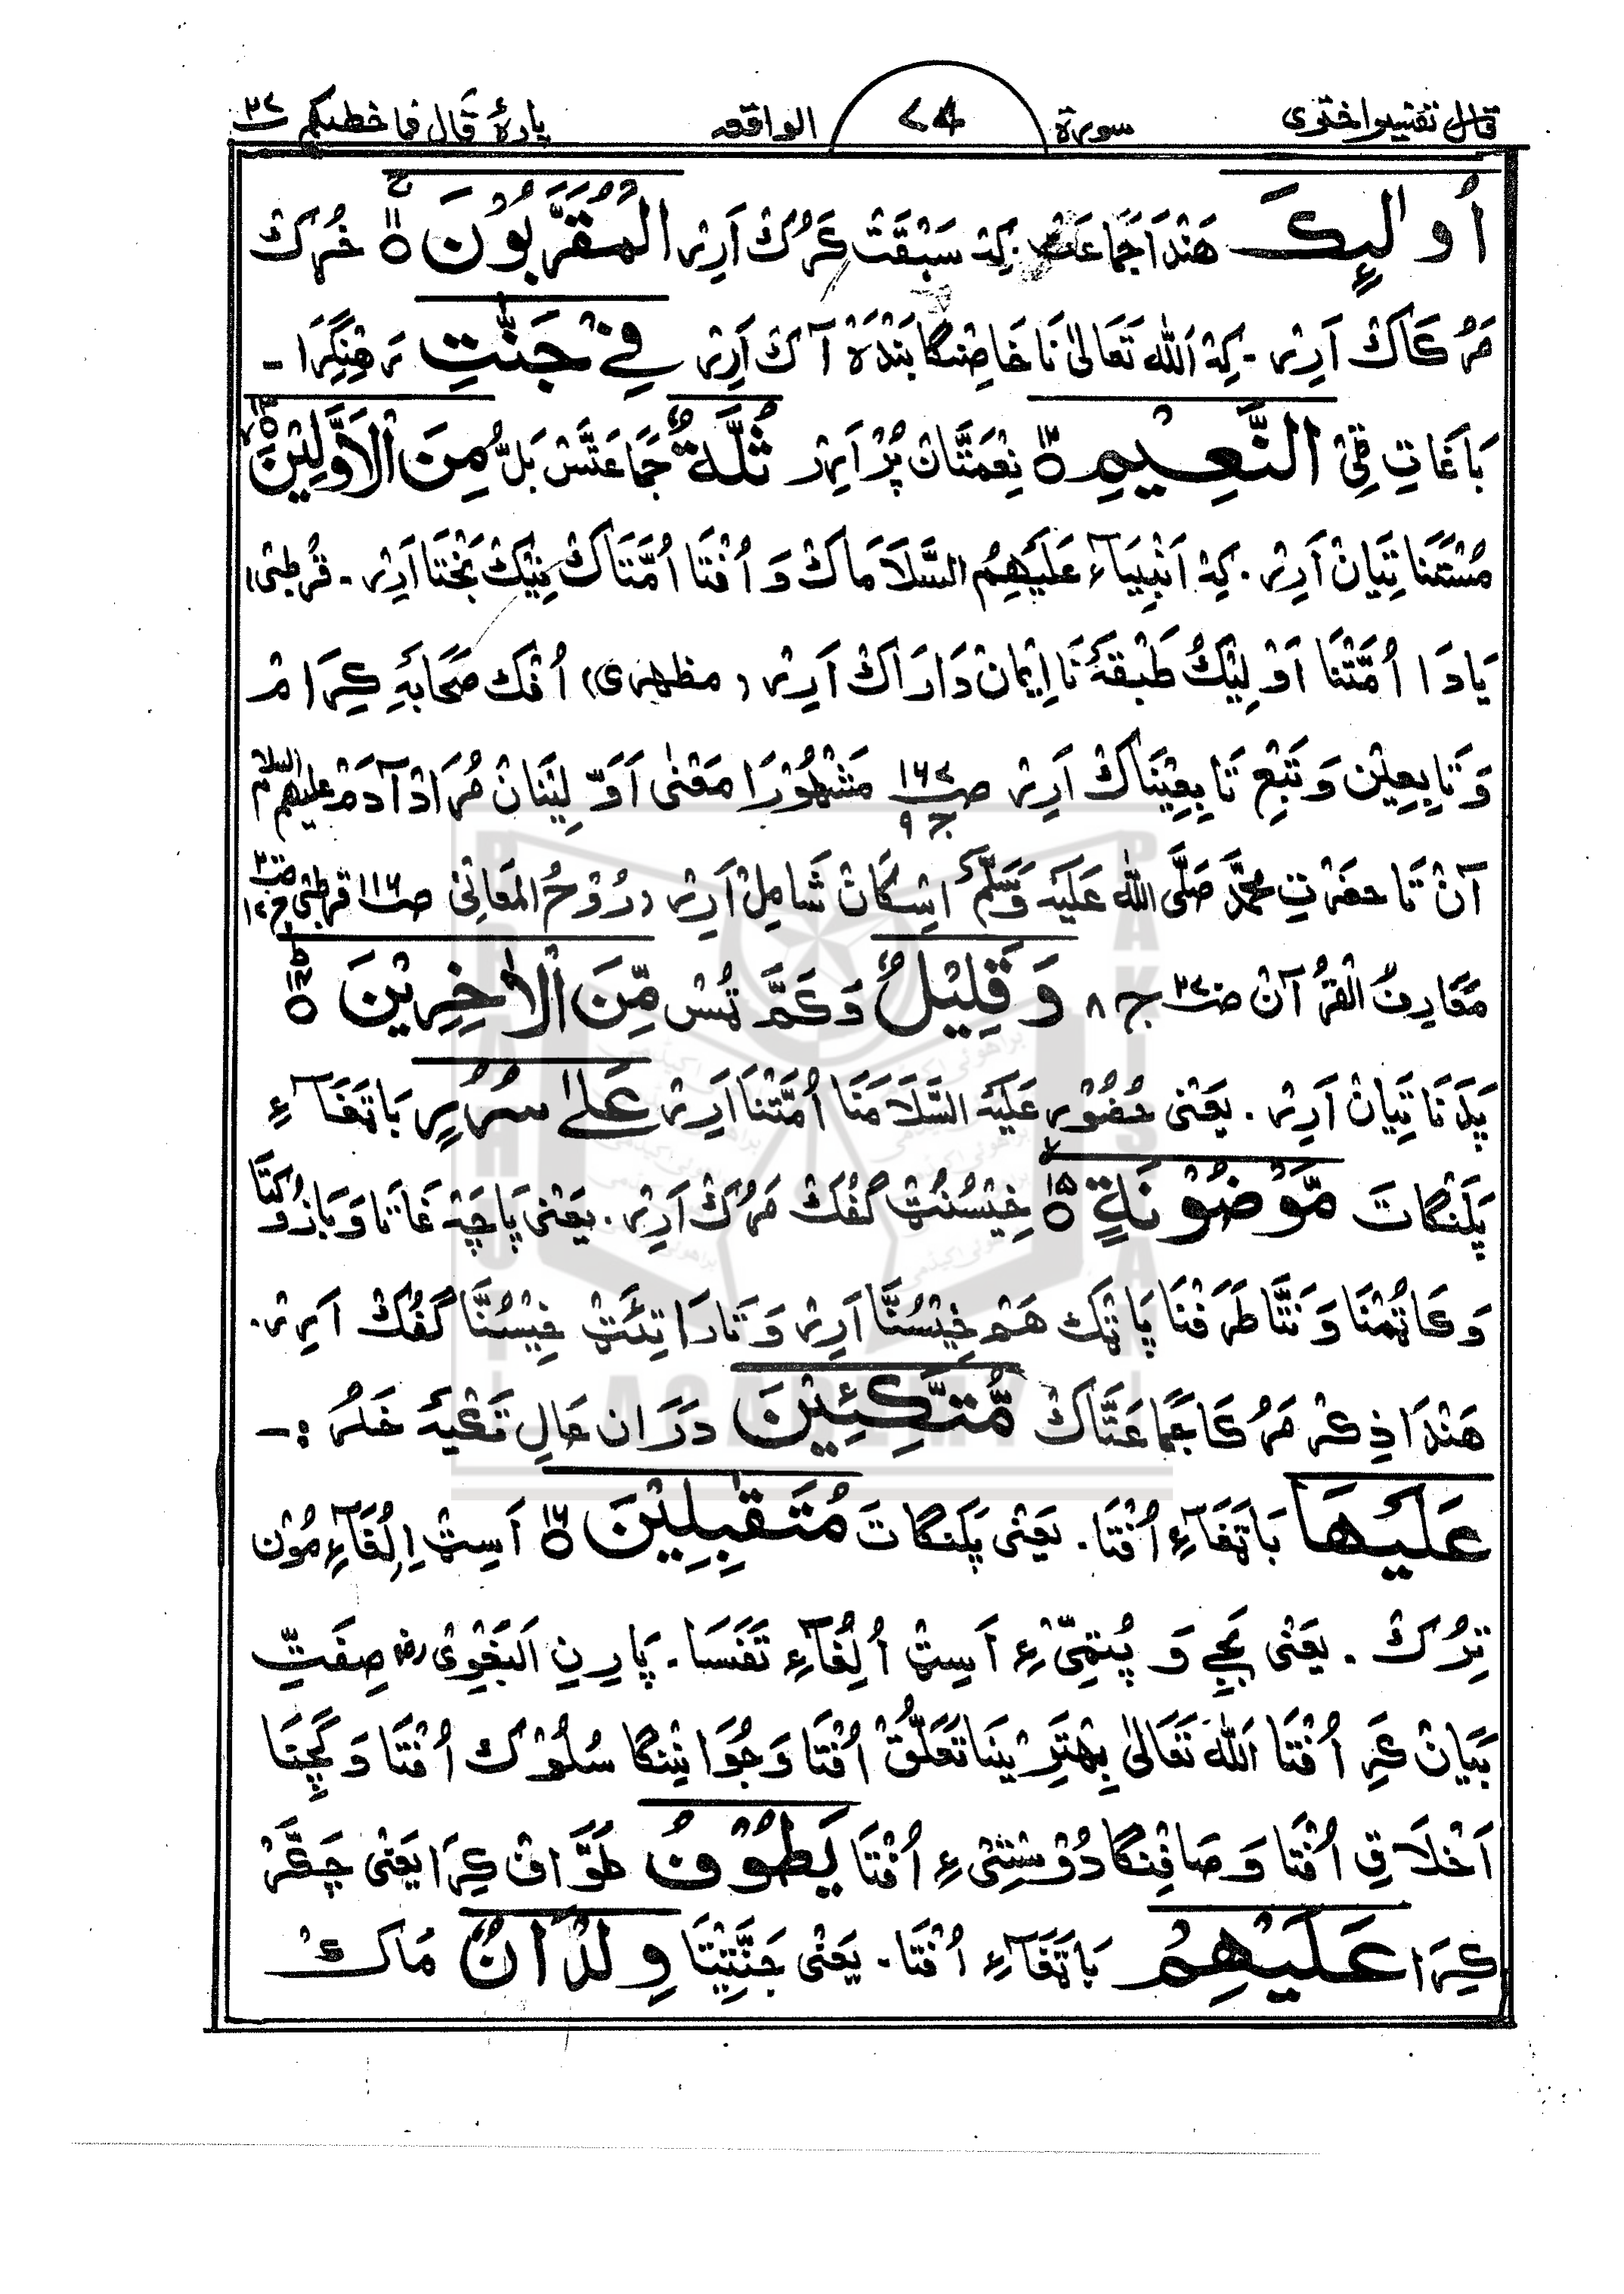 قال تفسیر اختری سورة ٧٤ الواقعہ پارۀ قَال فما خطبکم ٢٧
اُولٰٓئِكَ هَنْدَا جَمَاعَتْ کِہْ سَبْقَتْ کَرُكْ اَرِیْر الْمُقَرَّبُوْنَ ۝١١ خُرُكْ
مَرُ کَاكْ اَرِیْر - کِہْ اَللّٰه تَعَالیٰ نَا خَاصْنگَا بَنْدَہ آكْ اَرِیْر فِيْ جَنّٰتِ رَهِنْگِرَا -
بَاغَاتِ قِیْ النَّعِيْمِ ۝١٢ نِعْمَتَّانْ پُرْ اَرِیْر ثُلَّةٌ جَمَاعَتَّسْ بَلُّ مِنَ الْاَوَّلِيْنَ ۝١٣
مُسْتَنَا تِیَانْ اَرِیْر . کِہْ اَنْبِیَآء عَلَیْهِمُ السَّلَامَاكْ وَ اُفْتَا اُمَّتَاكْ نِیْكْ بَخْتَا اَرِیْر - قُرطبی)
یَادَا اُمَّتْنَا اَوْلِیْكُ طَبْقَۀ نَا اِیْمَانْ دَارَاكْ اَرِیْر (مظهری) اُفْك صَحَابَۀِ کِرَامْ
وَ تَابِعِیْن وَ تَبْعِ تَابِعِیْنَاكْ اَرِیْر صـ ١٦٧ ج ٩ مَشْهُوْرَا مَعْنٰی اَوَّلِیْنَانْ مُرَادْ آدَمْ علیهم السلام
آنْ تَا حضرتِ محمَّدْ صَلَّی اللّٰه عَلَیْہ وَسَلَّمْ اِسکَانْ شَامِلْ اَرِیْر (رُوْحُ المَعَانِیْ صـ ١١٦ قرطبی
مَعَارِفُ الْقُرْآنْ صـ ٢٧ ج ٨ وَ قَلِيْلٌ وَ کَمَّ تُسْ مِّنَ الْاٰخِرِيْنَ ۝١٤
پَدَنَا تِیَانْ اَرِیْر . یَعْنی حُضُوْر عَلَیْہ السَّلَامَنَا اُمَّتْنَا اَرِیْر عَلٰی سُرُرٍ بَاتَغَآءِ
پَلَنْگَاتَ مَّوْضُوْنَةٍ ۝١٥ خِیْسُنْٹْ گُفْكْ مَرُكْ اَرِیْر . یَعْنی پَاچَہْ غَاتَا وَ بَازُوْکَتَا
وَ کَاٹُمْنَا وَ نَنَّا طَرَفْنَا پَاٹْك هَمْ خِیْسُنَّا اَرِیْر وَ تَادَا تِئَٹ خِیْسُنَّا گُفُكْ اَرِیْر .
هَنْدَا ذِکْر مَرُ کَا جَمَاعَتَّاكْ مُّتَّكِـِٕيْنَ دَرَ ان حَالِ تَکْیَہ خَلُر :-
عَلَيْهَا بَاتَغَآءِ اُفْتَا . یَعْنی پَلَنْگَاتَ مُتَقٰبِلِيْنَ ۝١٦ اَسِٹْ اِلِقَآءِ مُوْن
تِرُكْ . یَعْنی بَجِ وَ پُنْتِیِّءِ اَسِٹ اُلِقَآءِ تَفَسَا . پَارِنِ اَلبَغْوِیْ رض صِفَتِّ
بَیَانْ کَرِ اُفْتَا اَللّٰه تَعَالیٰ بِهْتَرِیْنَا تَعَلُّقْ اُفْتَا وَ جُوَانِنگَا سُلُوْك اُفْتَا وَ گِچِنَا
اَخْلَاقِ اُفْتَا وَ صَافِنگَا دُوْسْتِیْءِ اُفْتَا يَطُوْفُ طَوَّافْ کِرَا یَعْنی چَکَّرْ
کِرَا عَلَيْهِمْ بَاتَغَآءِ اُفْتَا . یَعْنی جَنَّتِیْتَا وِلْدَانٌ مَاكْ